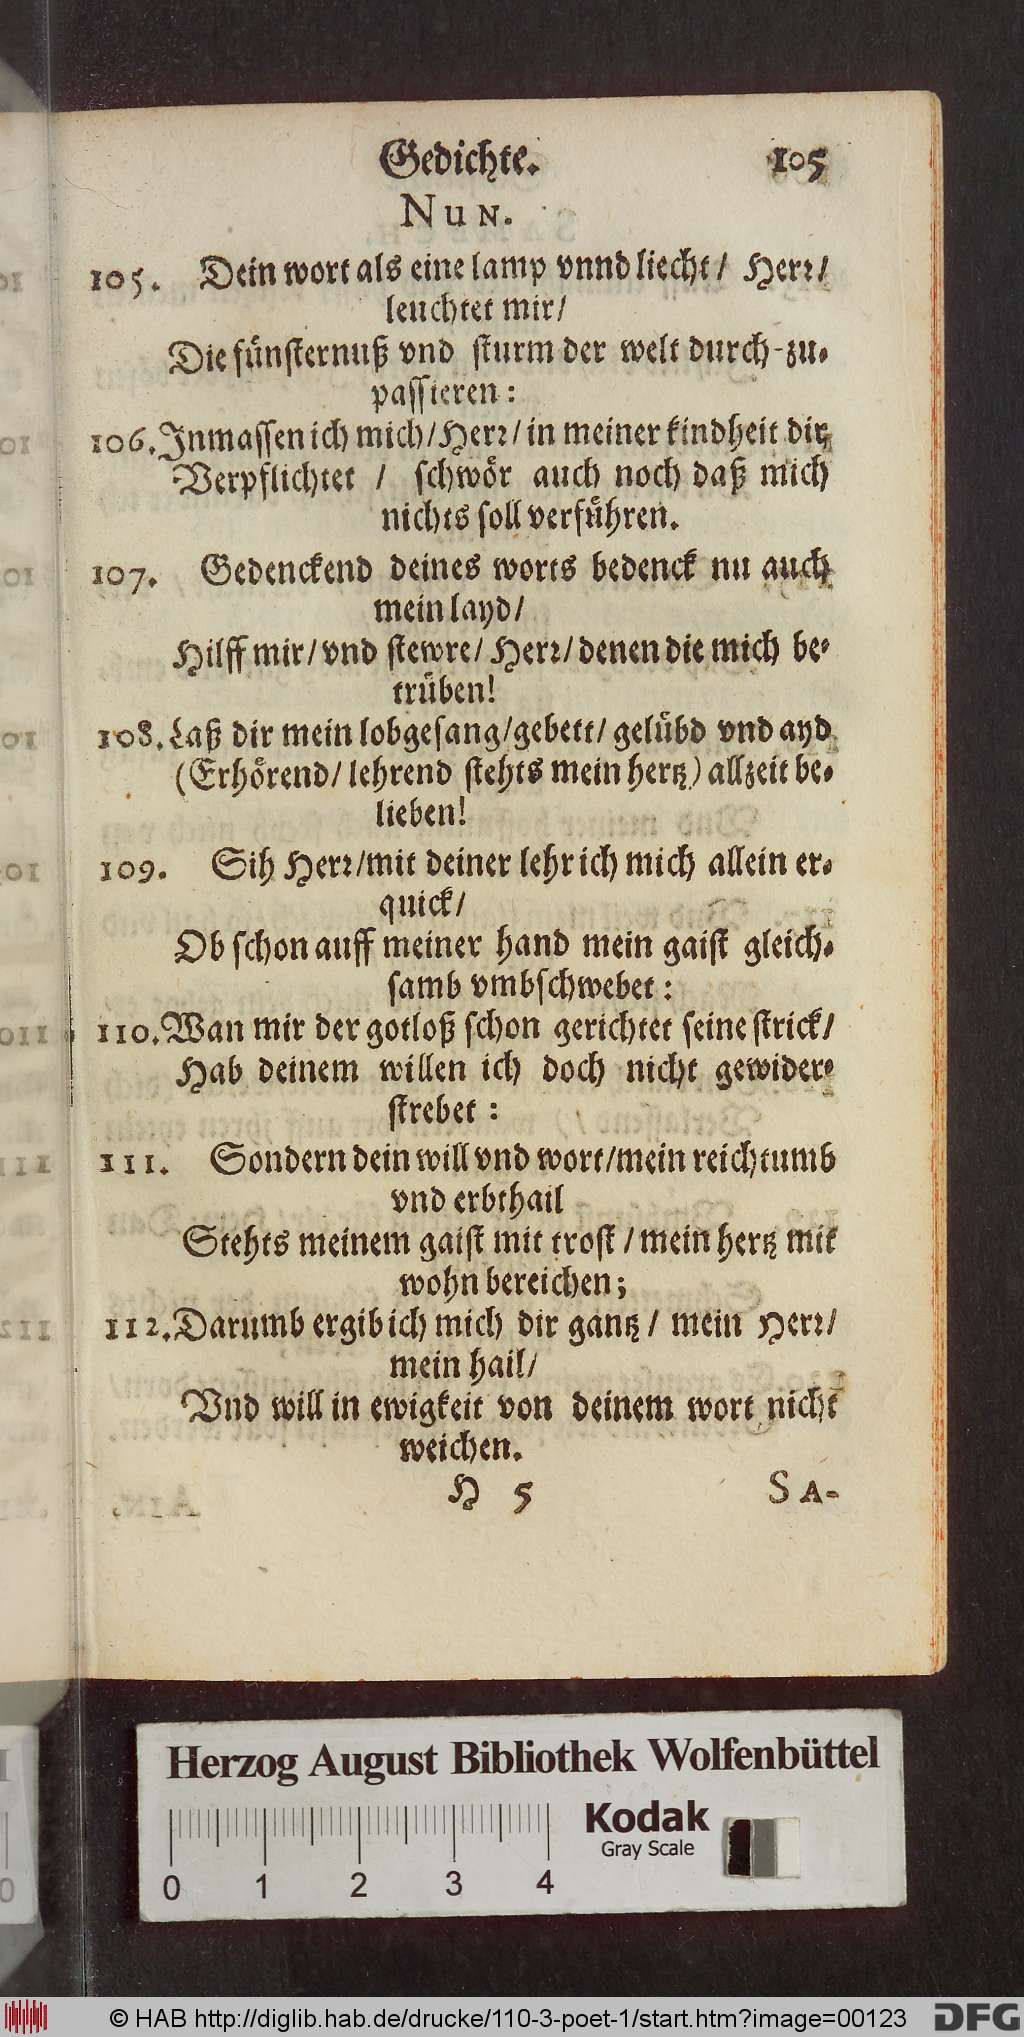 Gedichte. 105
NUN.
105. Dein wort als eine lamp vnnd liecht/ Herr/
leuchtet mir/
Die fünsternuß vnd sturm der welt durch-zu-
passieren:
106. Inmassen ich mich/ Herr/ in meiner kindheit dir
Verpflichtet / schwör auch noch daß mich
nichts soll verführen.
107. Gedenckend deines worts bedenck nu auch
mein layd/
Hilff mir/ vnd stewre/ Herr/ denen die mich be-
trüben!
108. Laß dir mein lobgesang/ gebett/ gelübd vnd ayd
(Erhörend/ lehrend stehts mein hertz) allzeit be-
lieben!
109. Sih Herr/ mit deiner lehr ich mich allein er-
quick/
Ob schon auff meiner hand mein gaist gleich-
samb vmbschwebet:
110. Wan mir der gotloß schon gerichtet seine strick/
Hab deinem willen ich doch nicht gewider-
strebet:
111. Sondern dein will vnd wort/ mein reichtumb
vnd erbthail
Stehts meinem gaist mit trost / mein hertz mit
wohn bereichen;
112. Darumb ergib ich mich dir gantz / mein Herr/
mein hail/
Vnd will in ewigkeit von deinem wort nicht
weichen.
H 5 SA-
Herzog August Bibliothek Wolfenbüttel
Kodak
Gray Scale
0 1 2 3 4
© HAB http://diglib.hab.de/drucke/110-3-poet-1/start.htm?image=00123 DFG